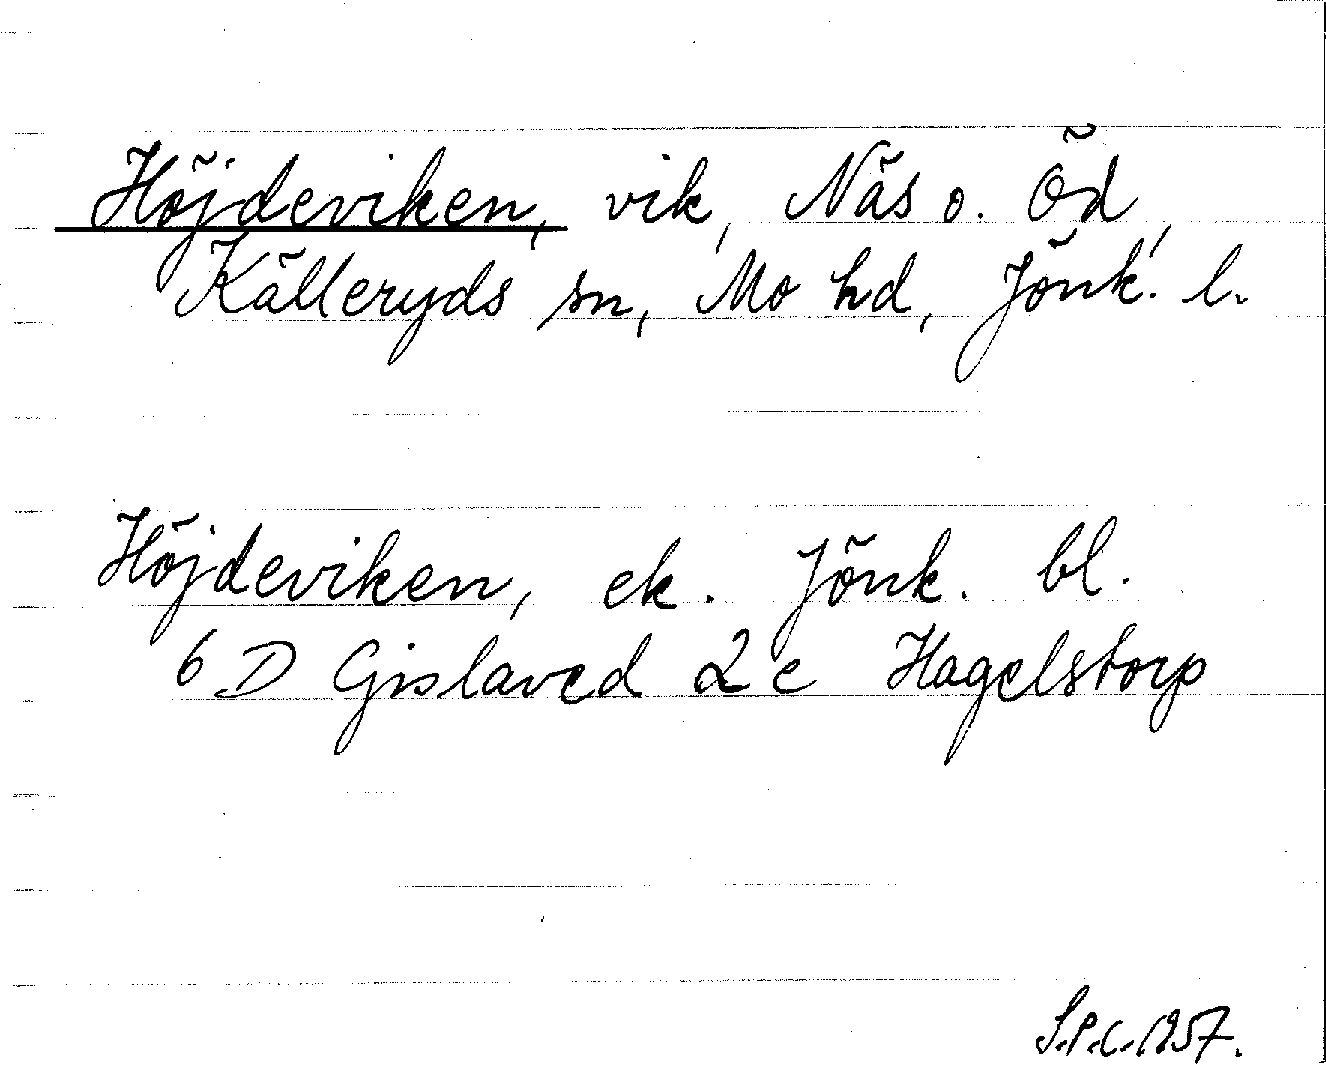 Höjdeviken, vik, Näs o. Öd,
Källeryds sn, Mo hd, Jönk. l.
Höjdeviken, ek. Jönk. bl.
6 D Gislaved 2 c Hagelstorp
S.P.C. 1957.